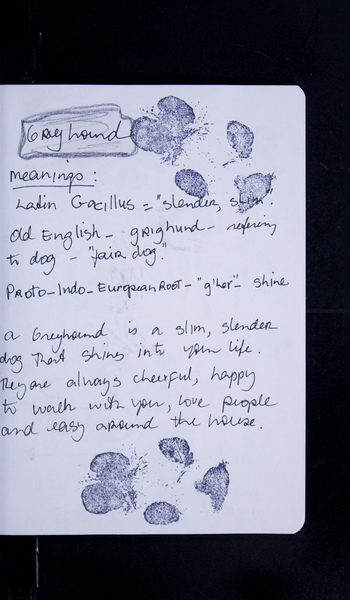 Greyhound
meanings:
Latin Gracillus = "slender, slim.
Old English - grighund - refering
to dog - "fair dog."
Proto-Indo-European Root - "g'her" - shine
a Greyhound is a slim, slender
dog that shines into your life.
They are always cheerful, happy
to walk with you, love people
and easy around the house.